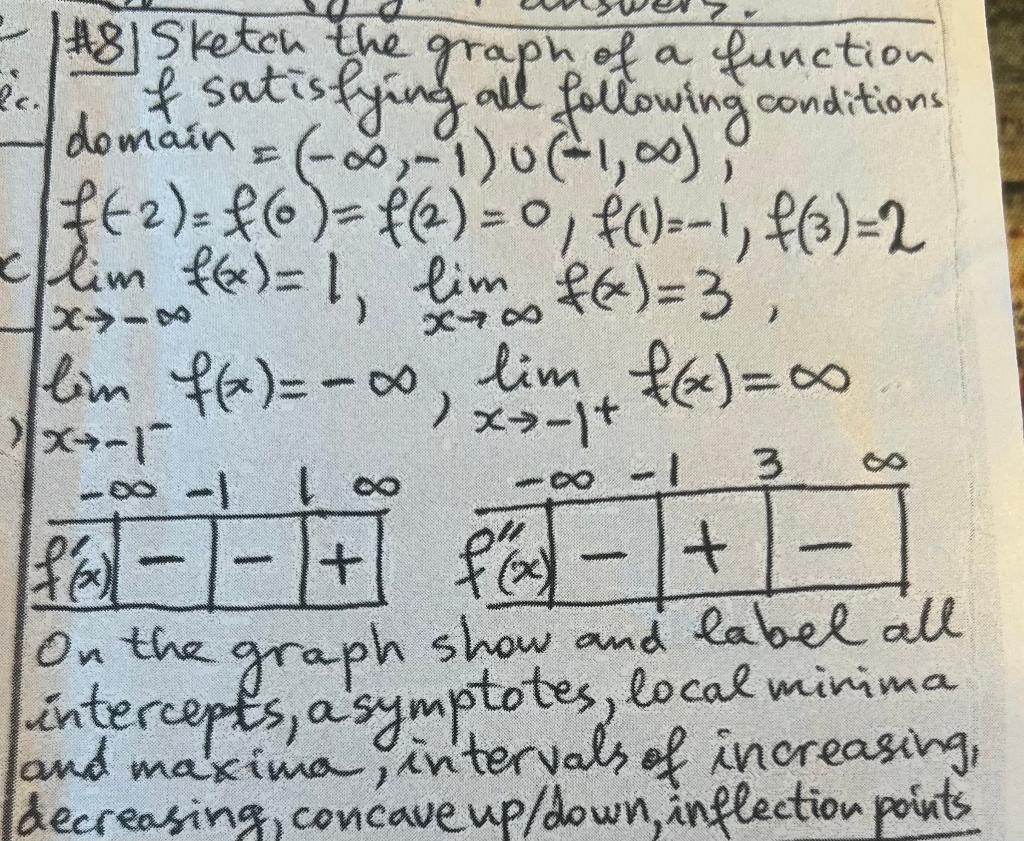 answers.
#8 Sketch the graph of a function
f satisfying all following conditions
domain = (-∞,-1) ∪ (-1, ∞) ,
f(-2)= f(0)= f(2) = 0, f(1)=-1, f(3)=2
lim f(x)= 1, lim f(x)= 3 ,
x→-∞ x→∞
lim f(x)= -∞, lim f(x)= ∞
x→-1⁻ x→-1⁺
-∞ -1 1 ∞ -∞ -1 3 ∞
f'(x) - - + f''(x) - + -
On the graph show and label all
intercepts, asymptotes, local minima
and maxima, intervals of increasing,
decreasing, concave up/down, inflection points